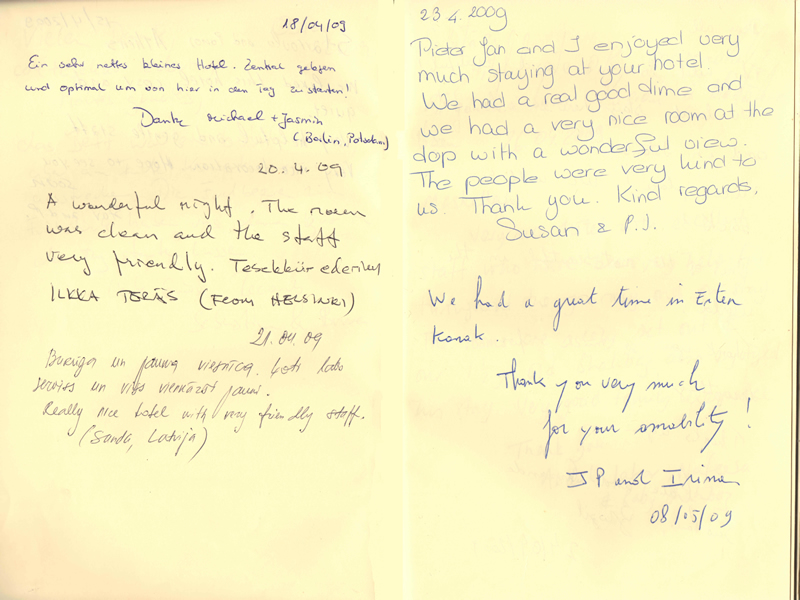 18/04/09
Ein sehr nettes kleines Hotel. Zentral gelegen
und optimal um von hier in den Tag zu starten!
Danke Michael + Jasmin
(Berlin, Potsdam)
20.4.09
A wonderful night. The room
was clean and the staff
very friendly. Tesekkür ederim
ILKKA TERÄS (FROM HELSINKI)
21.04.09
un jauna viesnīca. Ļoti labs
serviss un viss vienkārši jauns.
Really nice hotel with very friendly staff.
(Sanda, Latvija)
23.4.2009
Pieter Jan and I enjoyed very
much staying at your hotel.
We had a real good dime and
we had a very nice room at the
dop with a wonderful view.
The people were very kind to
us. Thank you. Kind regards,
Susan & P.J.
We had a great time in Erten
Konak.
Thank you very much
for your amability!
JP and Irina
08/05/09